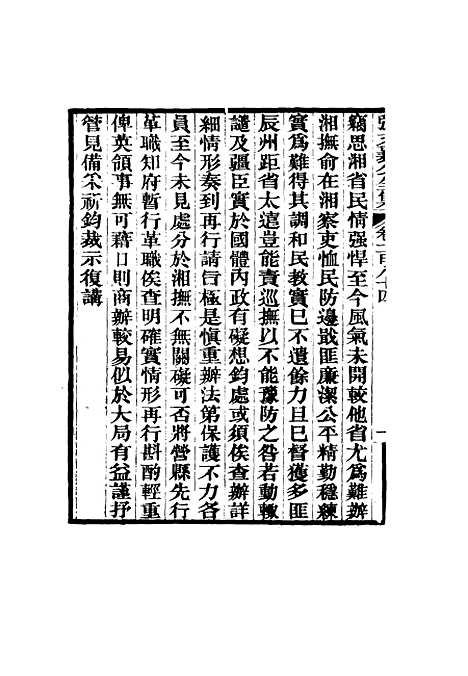 張文襄公全集 卷一百八十四
竊思湘省民情强悍至今風氣未開較他省尤爲難辦
湘撫俞在湘察吏恤民防邊戢匪廉潔公平精勤穩練
實爲難得其調和民教實已不遺餘力且已督獲多匪
辰州距省太遠豈能責巡撫以不能豫防之咎若動輙
譴及疆臣實於國體内政有礙想鈞處或須俟查辦詳
細情形奏到再行請旨極是愼重辦法第保護不力各
員至今未見處分於湘撫不無關礙可否將營縣先行
革職知府暫行革職俟查明確實情形再行斟酌輕重
俾英領事無可藉口則商辦較易似於大局有益謹抒
管見備采祈鈞裁示復講